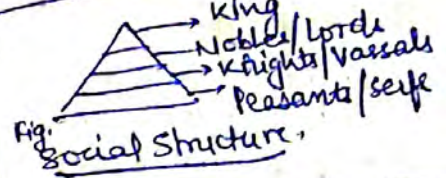 King
Nobles/Lords
Knights/Vassals
Peasants/serfs
Fig.
Social Structure.